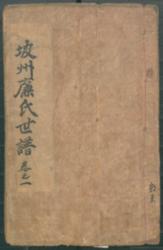 坡州廉氏世譜 卷之一